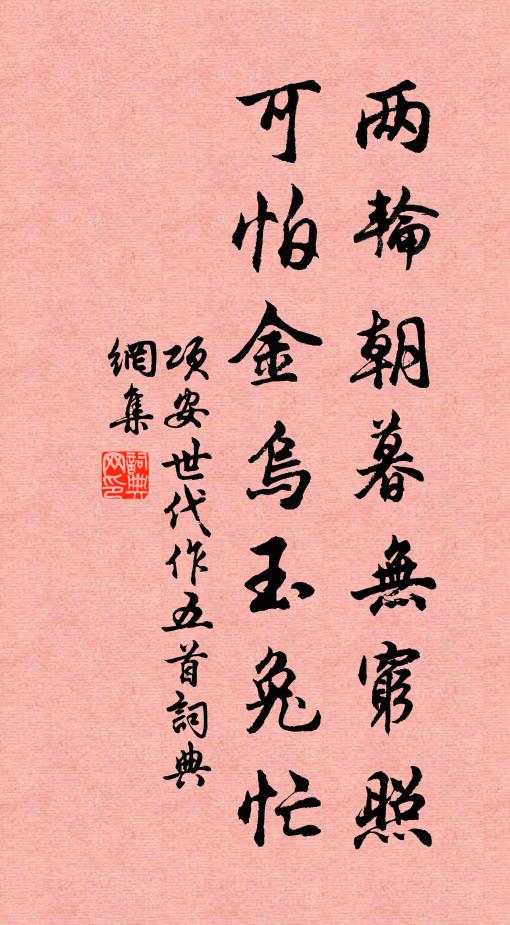 两輪朝暮無窮照
可怕金烏玉兔忙
項安世代作五首詞典
網集
詞典網印